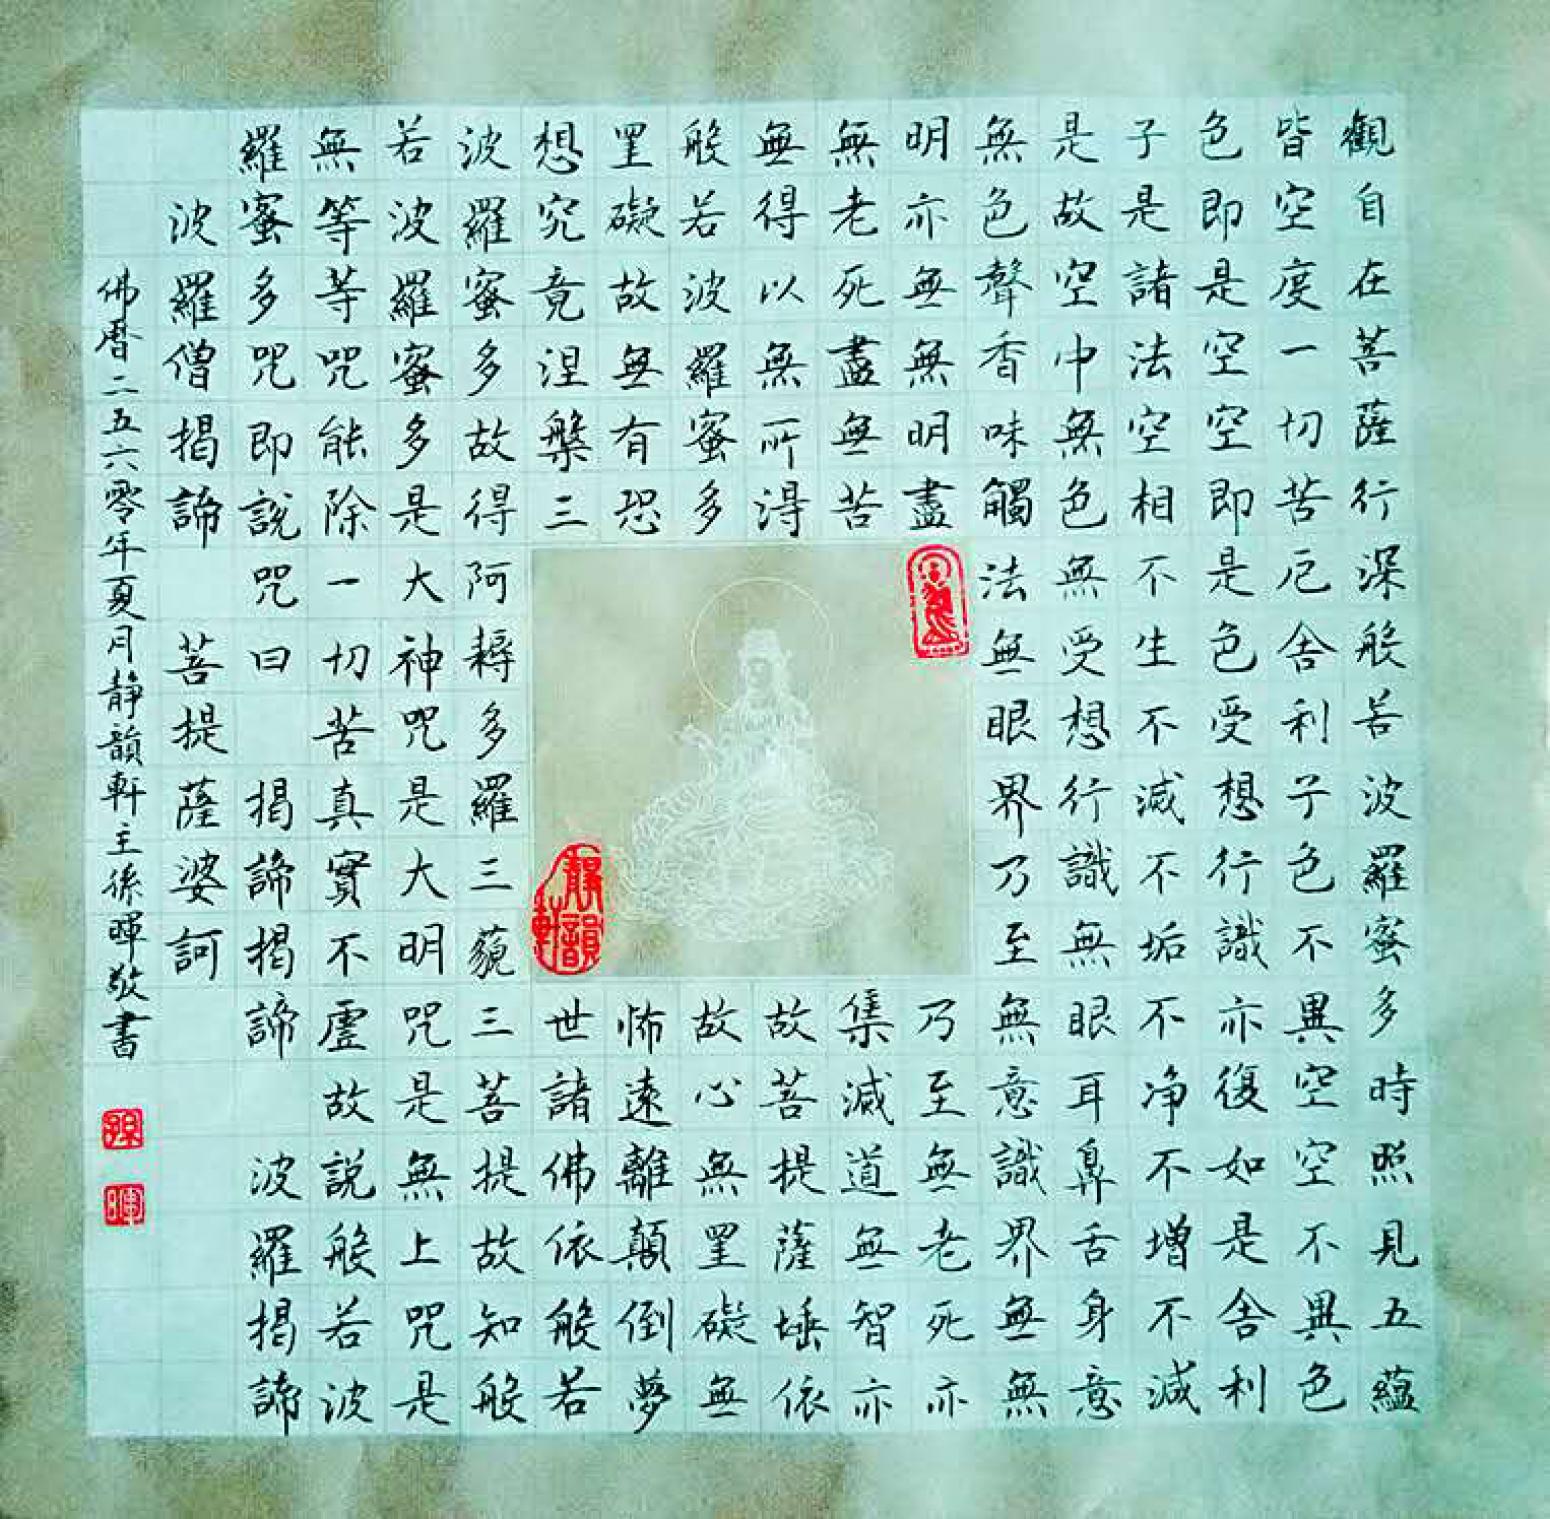 觀自在菩薩行深般若波羅蜜多時照見五蘊
皆空度一切苦厄舍利子色不異空空不異色
色即是空空即是色受想行識亦復如是舍利
子是諸法空相不生不滅不垢不净不增不減
是故空中無色無受想行識無眼耳鼻舌身意
無色聲香味觸法無眼界乃至無意識界無無
明亦無無明盡乃至無老死亦
無老死盡無苦集滅道無智亦
無得以無所得故菩提薩埵依
般若波羅蜜多故心無罣礙無
罣礙故無有恐怖遠離顛倒夢
想究竟涅槃三世諸佛依般若
波羅蜜多故得阿耨多羅三藐三菩提故知般
若波羅蜜多是大神咒是大明咒是無上咒是
無等等咒能除一切苦真實不虛故說般若波
羅蜜多咒即說咒曰 揭諦揭諦 波羅揭諦
波羅僧揭諦 菩提薩婆訶
佛曆二五六零年夏月静韻軒主孫暉敬書
靜韻軒
孫
暉